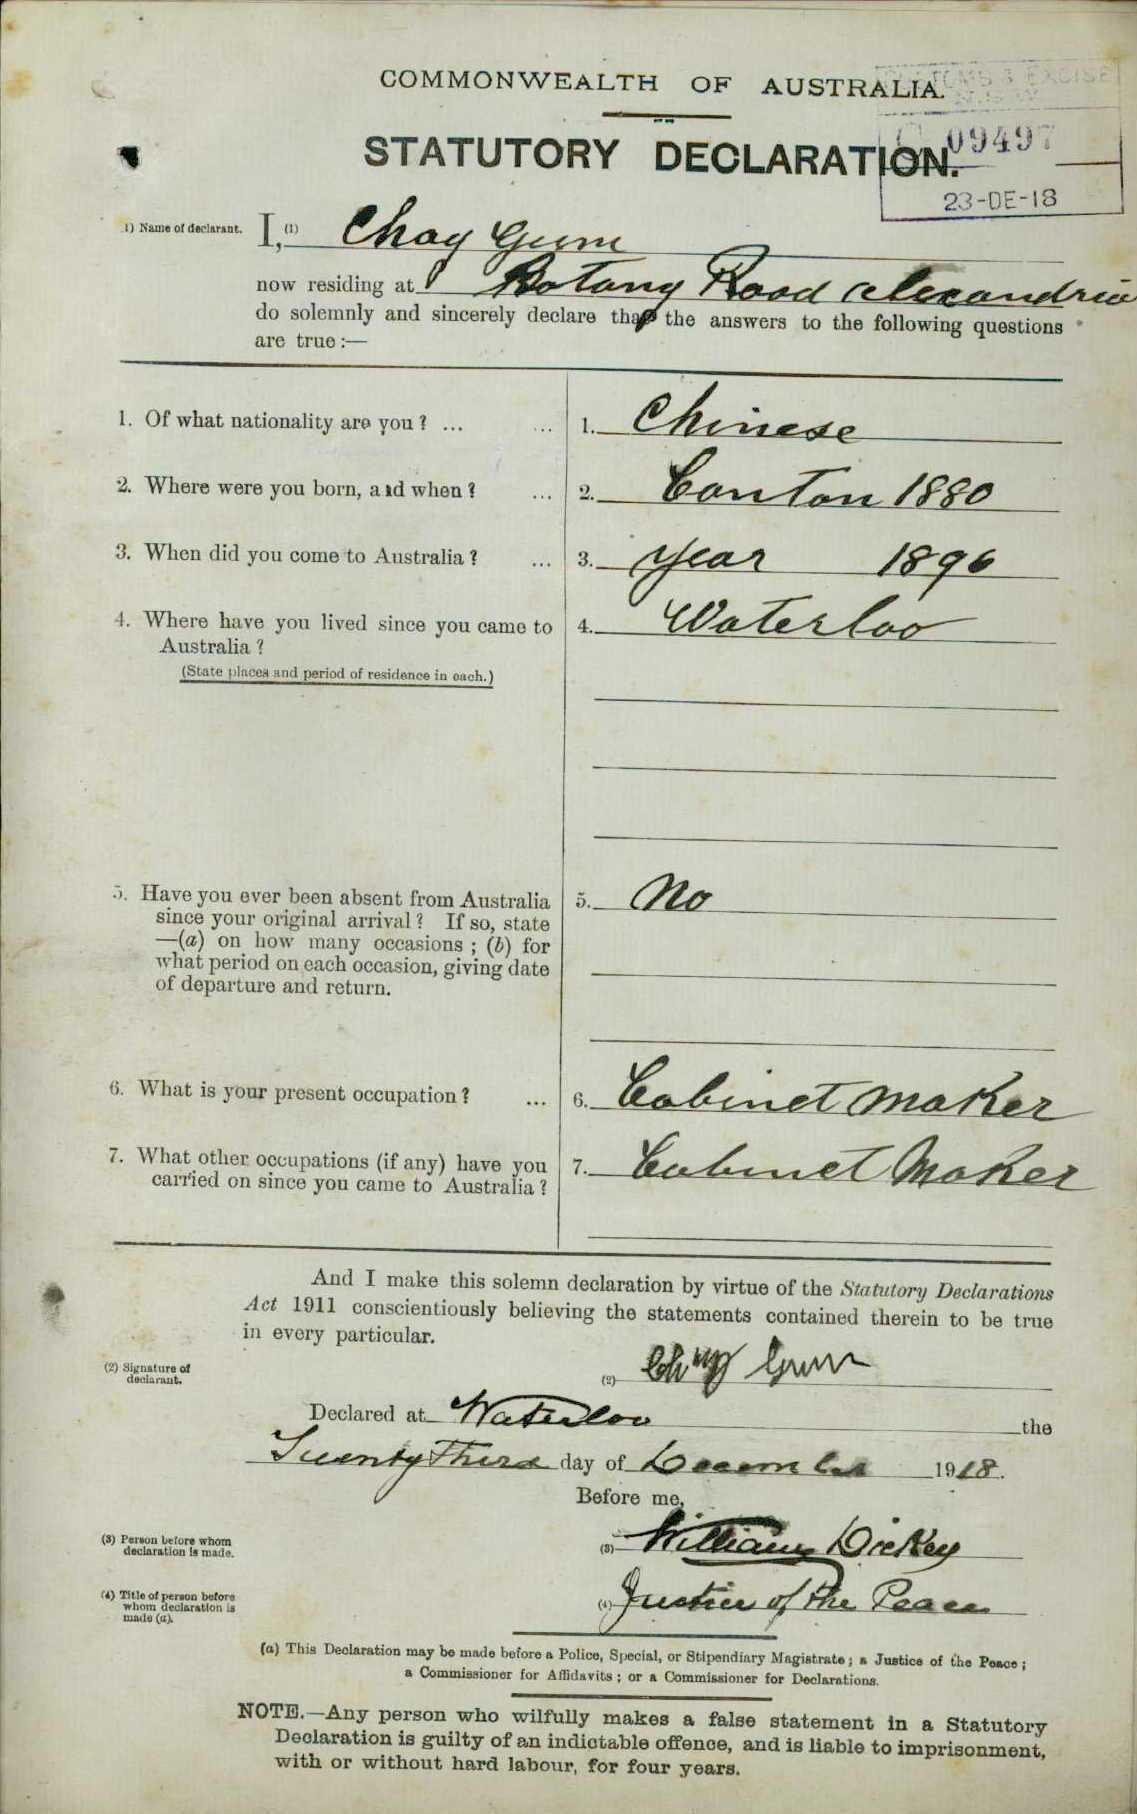 COMMONWEALTH OF AUSTRALIA.
CUSTOMS & EXCISE
N.S.W.
STATUTORY DECLARATION.
C 09497
23-DE-18
1) Name of declarant. I, (1) Choy Gum
now residing at Botany Road Alexandria
do solemnly and sincerely declare that the answers to the following questions
are true :—
1. Of what nationality are you ? ... ... 1. Chinese
2. Where were you born, and when ? ... 2. Canton 1880
3. When did you come to Australia ? ... 3. year 1896
4. Where have you lived since you came to 4. Waterloo
Australia ?
(State places and period of residence in each.)
5. Have you ever been absent from Australia 5. No
since your original arrival ? If so, state
—(a) on how many occasions ; (b) for
what period on each occasion, giving date
of departure and return.
6. What is your present occupation ? ... 6. Cabinet Maker
7. What other occupations (if any) have you 7. Cabinet Maker
carried on since you came to Australia ?
And I make this solemn declaration by virtue of the Statutory Declarations
Act 1911 conscientiously believing the statements contained therein to be true
in every particular.
(2) Signature of
declarant.
(2) Gum
Declared at Waterloo the
Twenty Third day of December 1918.
Before me,
(3) Person before whom
declaration is made.
(3) William Dickey
(4) Title of person before
whom declaration is
made (a).
(4) Justice of the Peace
(a) This Declaration may be made before a Police, Special, or Stipendiary Magistrate ; a Justice of the Peace ;
a Commissioner for Affidavits ; or a Commissioner for Declarations.
NOTE.—Any person who wilfully makes a false statement in a Statutory
Declaration is guilty of an indictable offence, and is liable to imprisonment,
with or without hard labour, for four years.